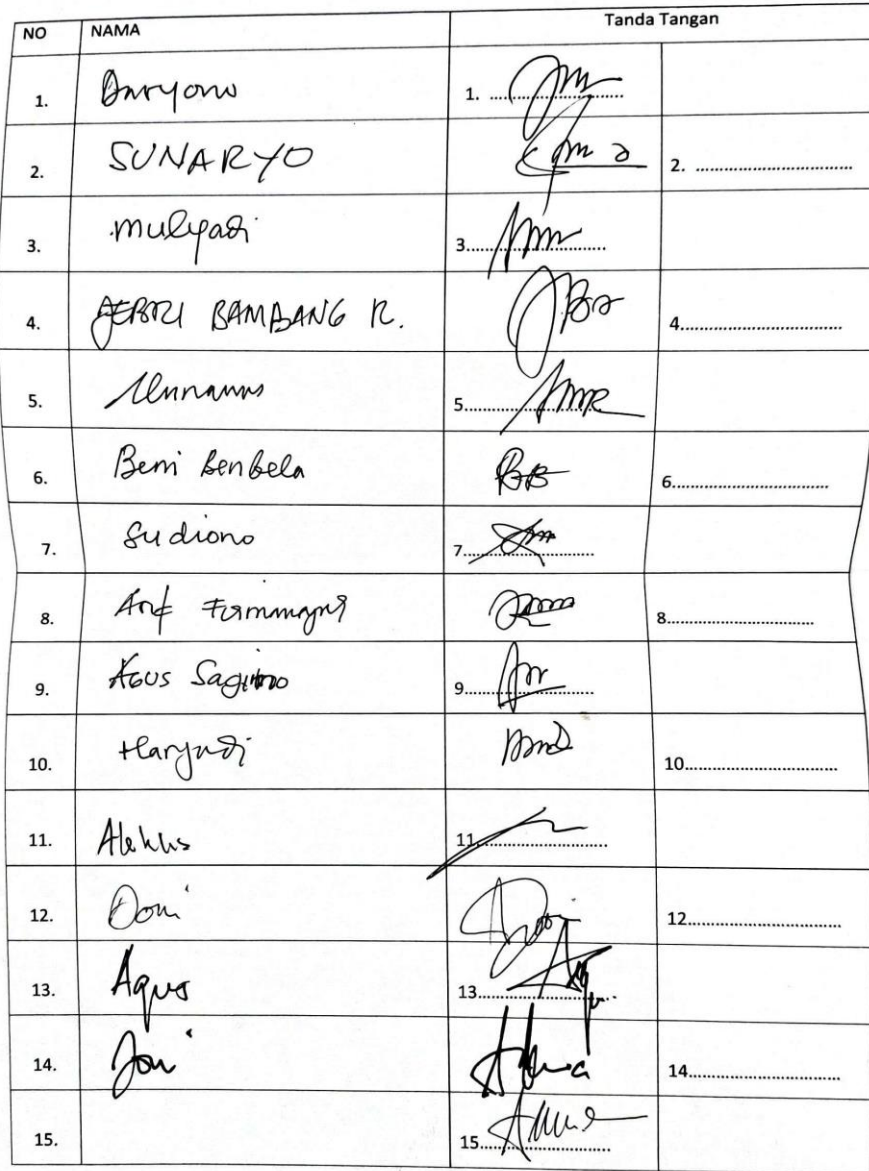 NO NAMA Tanda Tangan
1. Daryono 1. ..............................
2. SUNARYO 2. ..............................
3. Mulyadi 3..............................
4. FEBRI BAMBANG R. 4..............................
5. 5..............................
6. Beni Benbela BB 6..............................
7. Sudiono 7..............................
8. Arif 8..............................
9. AGUS 9..............................
10. Haryadi 10..............................
11. 11..............................
12. Doni 12..............................
13. Agus 13..............................
14. Joni 14..............................
15. 15..............................